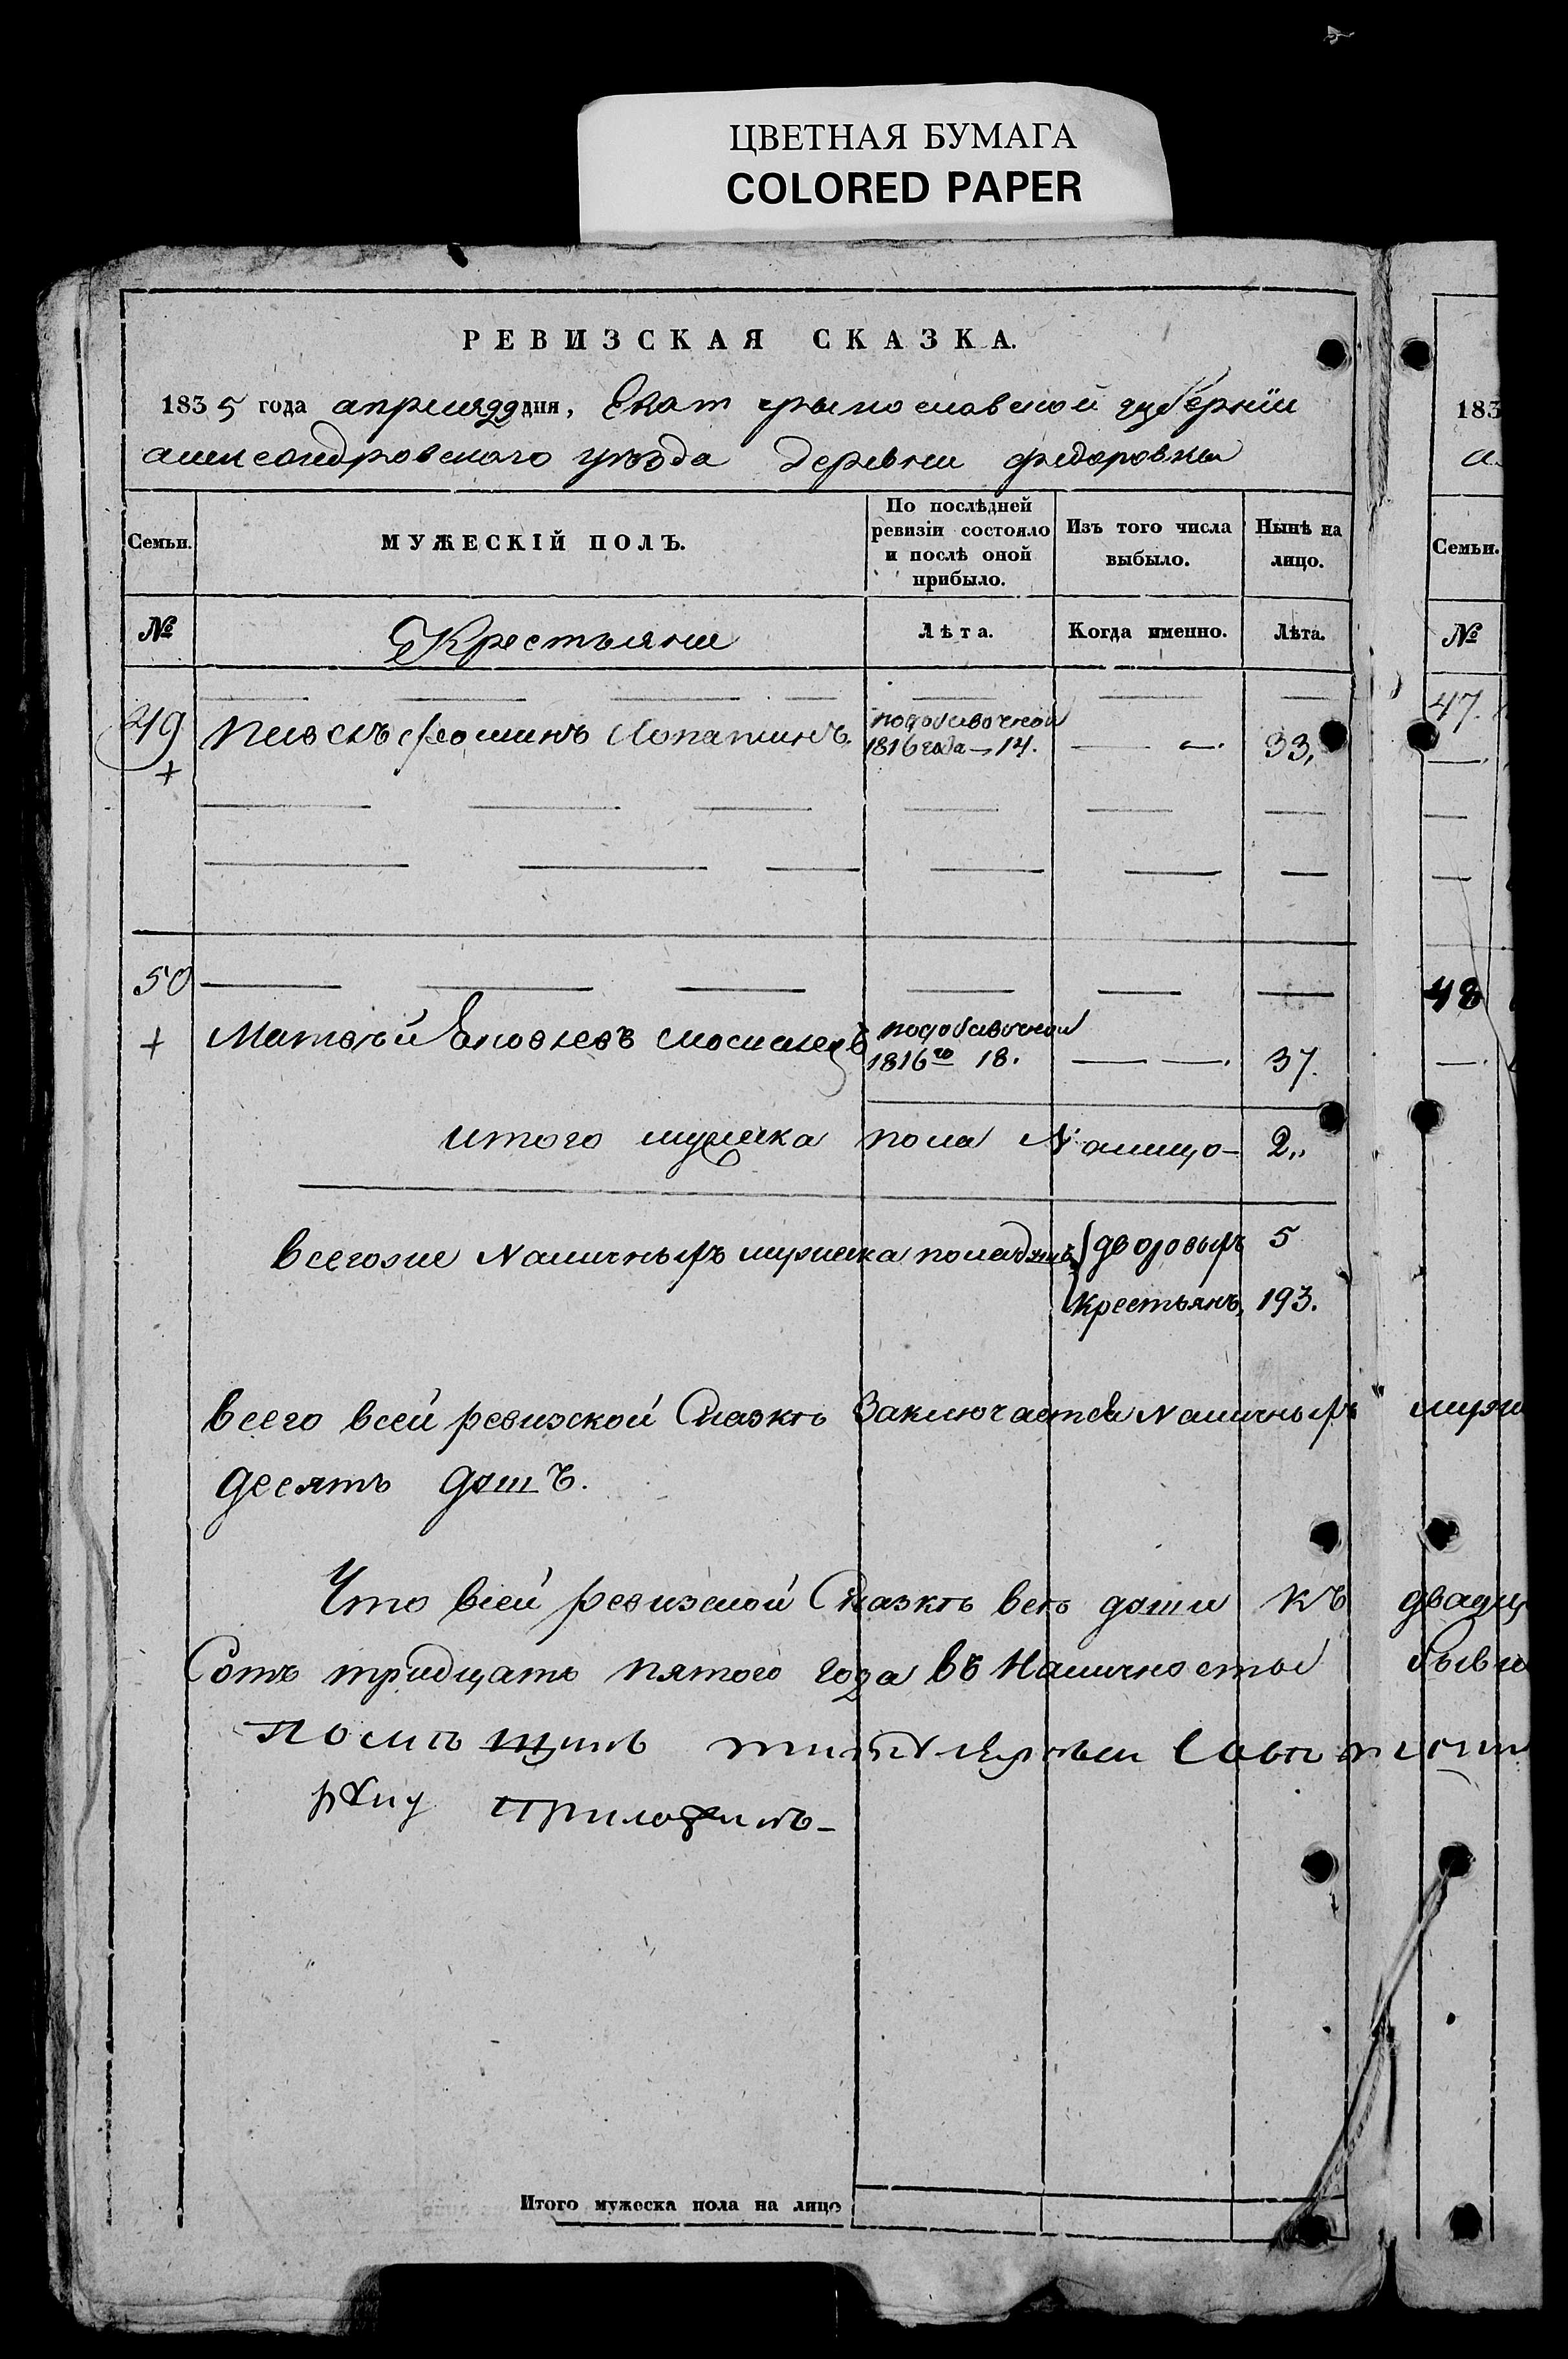 ЦВЕТНАЯ БУМАГА
COLORED PAPER
РЕВИЗСКАЯ СКАЗКА.
1835 года апреля 22 дня, Екатериnославской губернїи
александровского уѣзда деревни федоровки
Семьи.
МУЖЕСКІЙ ПОЛЪ.
По послѣдней ревизіи состояло и послѣ оной прибыло.
Изъ того числа выбыло.
Нынѣ на лицо.
№
Крестьяни
Лѣта.
Когда именно.
Лѣта.
49
Лопатинъ
подобавочной
1816 года — 14.
33,
50
Матвѣй Яковлевъ
подобавочной
1816го 18.
37.
итого мужеска пола Налицо — 2,,
всегоже Наличныхъ мужеска пола душъ
дворовыхъ 5
крестьянъ, 193.
всего всей ревизской Сказкѣ Заключается Наличныхъ
десять душъ.
Что всей ревизской Сказкѣ все души къ
Сотъ тридцать пятого года въ Наличносты
руку приложилъ
Итого мужеска пола на лицо
183
а
Семьи.
№
47.
48